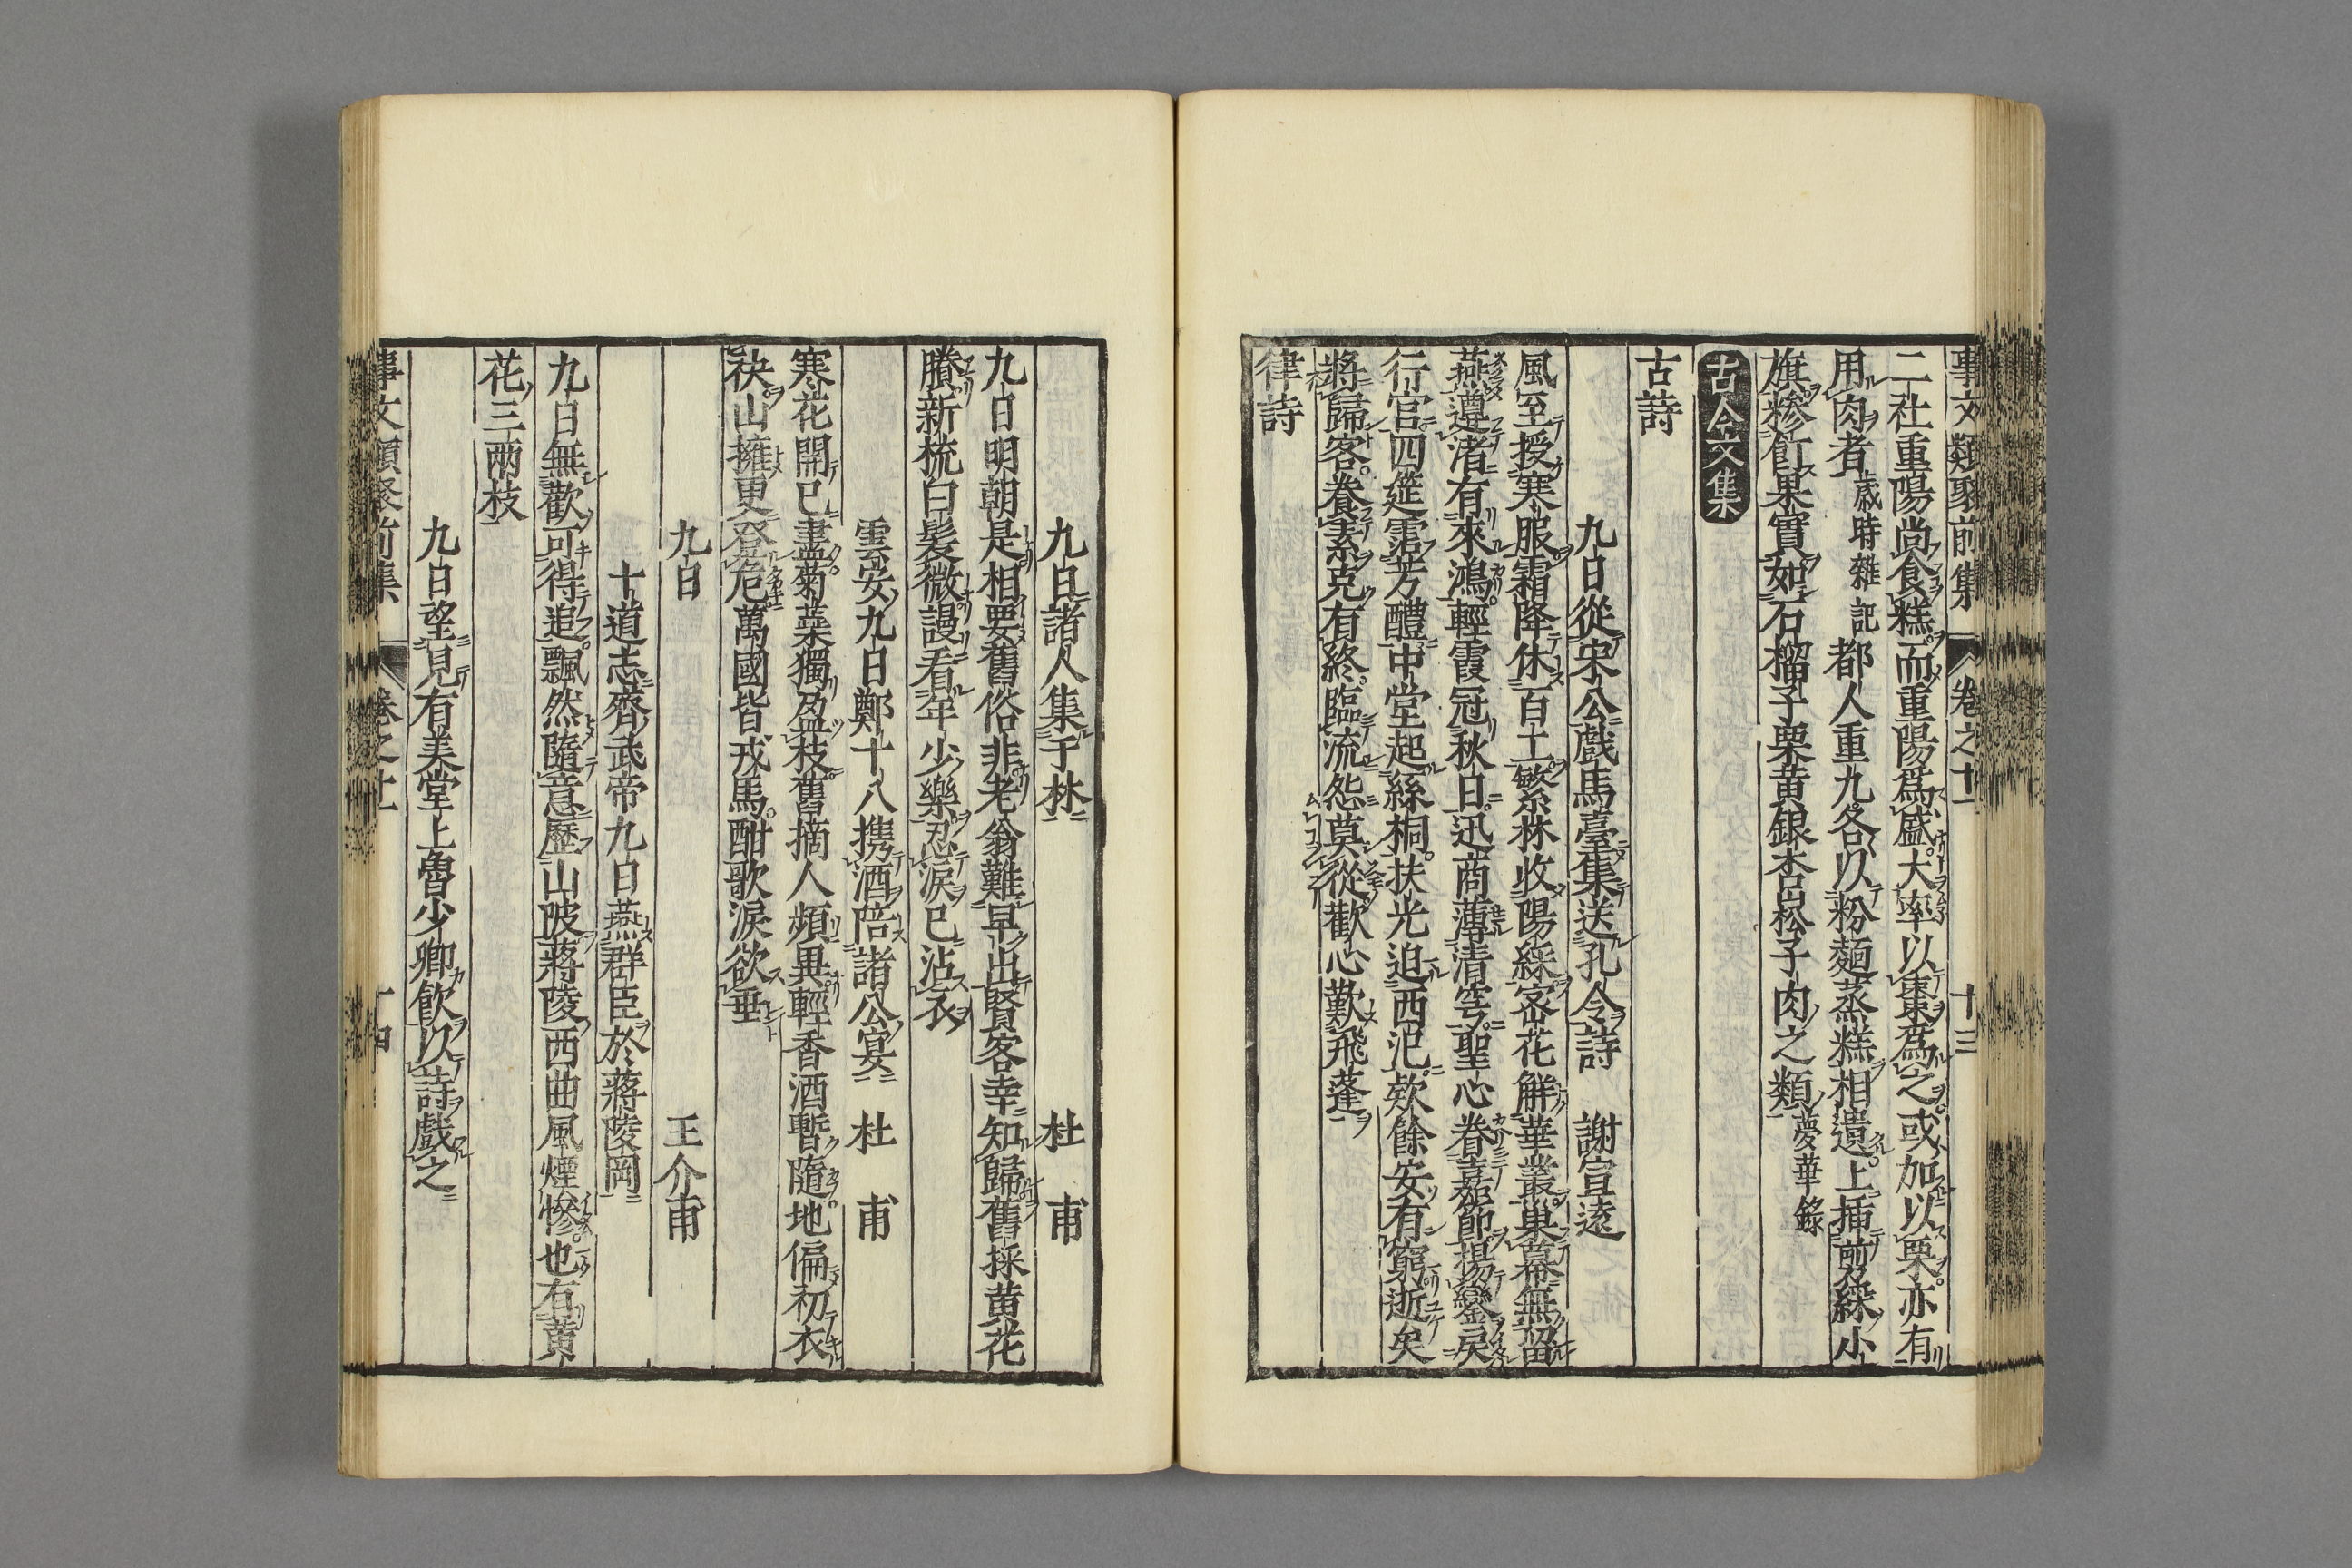 事文類聚前集 卷之十一 十三
二社重陽尚食糕而重陽爲盛大率以棗爲之或加以栗亦有
用肉者歲時雜記都人重九各以粉麵蒸糕相遺上插剪綵小
旗糝飣果實如石榴子栗黄銀杏松子肉之類夢華錄
古今文集
古詩
九日從宋公戲馬臺集送孔令詩 謝宣遠
風至授寒服霜降休百工繁林收陽綵宻花觧華叢巢幕無留
燕遵渚有來鴻輕霞冠秋日迅商薄清穹聖心眷嘉節揚鑾戾
行宮四筵霑芳醴中堂起絲桐扶光迫西汜歘餘安有窮逝矣
將歸客養素克有終臨流怨莫從歡心歎飛蓬
律詩
九日諸人集于林 杜甫
九日明朝是相要舊俗非老翁難早出賢客幸知歸舊採黄花
賸新梳白髮微謾看年少樂忍淚已沾衣
雲安九日鄭十八携酒陪諸公宴 杜甫
寒花開已盡菊蘂獨盈枝舊摘人頻異輕香酒暫隨地偏初衣
袂山擁更登危萬國皆戎馬酣歌淚欲垂
九日 王介甫
十道志齊武帝九日燕群臣於蔣陵岡
九日無歡可得追飄然隨意歷山陂蔣陵西曲風煙慘也有黄
花三兩枝
九日望見有美堂上魯少卿飲以詩戲之
事文類聚前集 卷之十一 十四